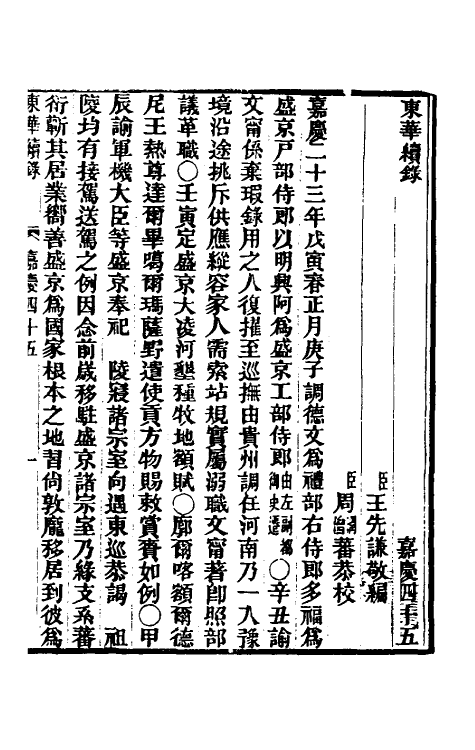 東華續錄
嘉慶四十五
臣王先謙敬編
臣周潤蕃恭校
嘉慶二十三年戊寅春正月庚子調德文爲禮部右侍郎多福爲
盛京戶部侍郎以明興阿爲盛京工部侍郎由左副都御史遷〇辛丑諭
文甯係棄瑕錄用之人復擢至巡撫由貴州調任河南乃一入豫
境沿途挑斥供應縱容家人需索站規實屬溺職文甯著卽照部
議革職〇壬寅定盛京大淩河墾種牧地額賦〇廓爾喀額爾德
尼王熱尊達爾畢噶爾瑪薩野遣使貢方物賜敕賞賚如例〇甲
辰諭軍機大臣等盛京奉祀 陵寢諸宗室向遇東巡恭謁 祖
陵均有接駕送駕之例因念前歲移駐盛京諸宗室乃緣支系蕃
衍蘄其居業嚮善盛京爲國家根本之地習尙敦龐移居到彼爲
東華續錄 嘉慶四十五 一